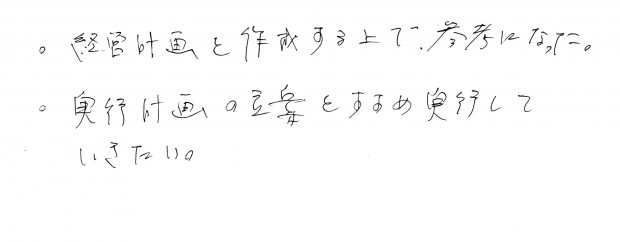 。経営計画を作成する上で、参考になった。
。実行計画の立案をすすめ実行して
いきたい。